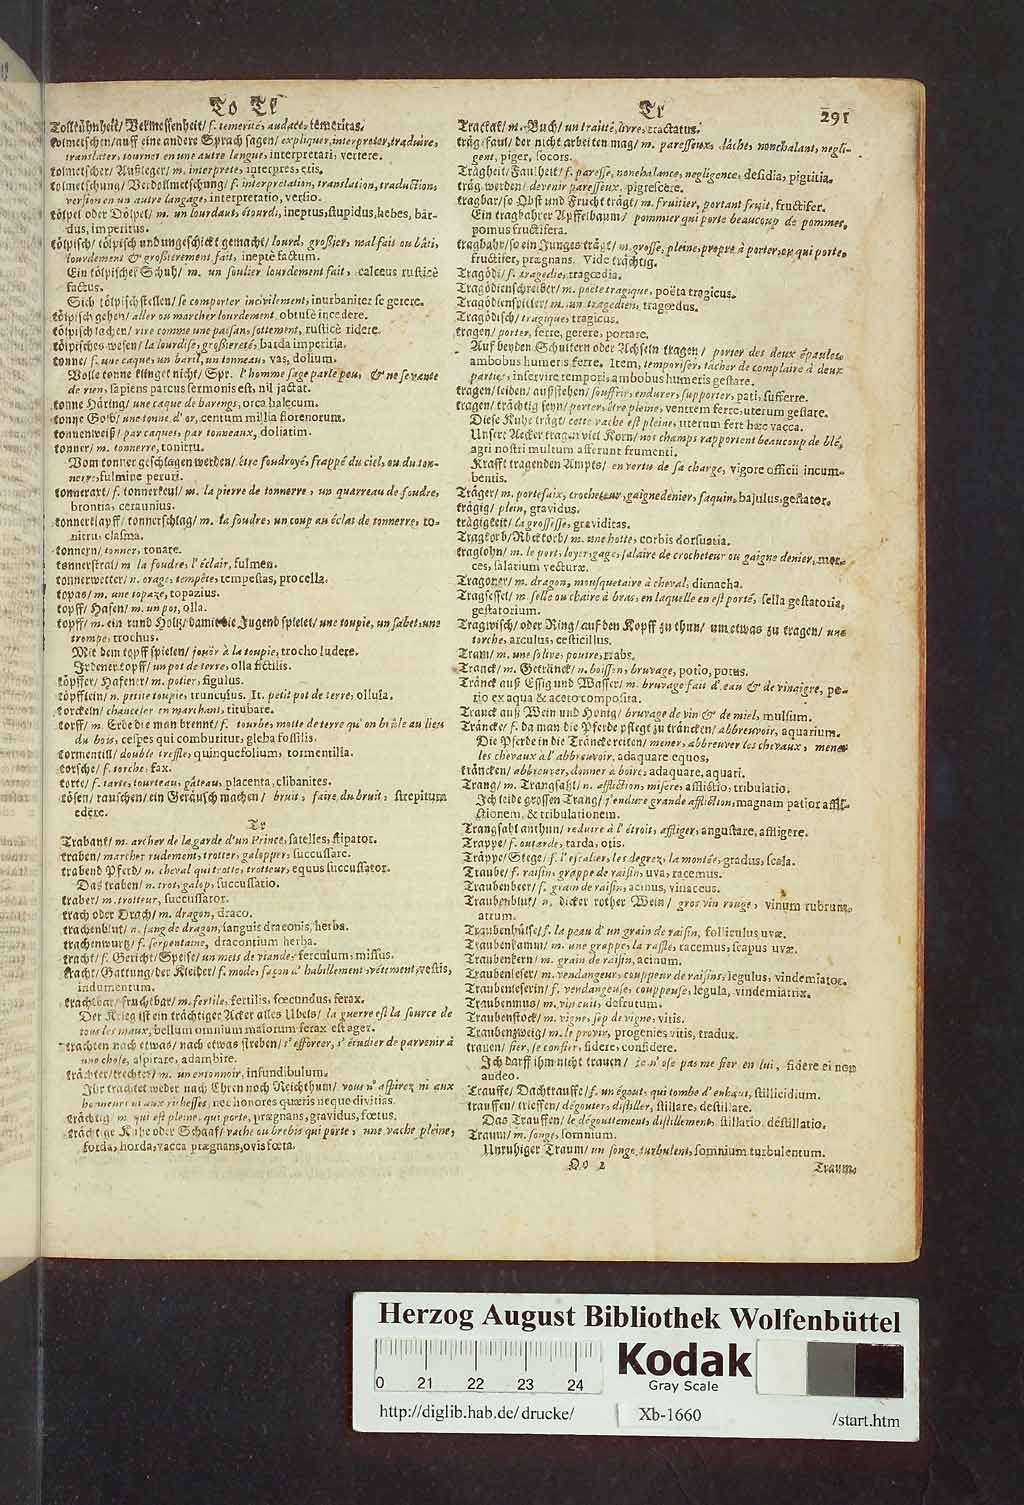 To Tr
Tollkühnheit/ Vermessenheit/ f. temerité, audace, temeritas.
tolmetschen/auff eine andere Sprach sagen/ expliquer, interpreter, traduire,
translater, tourner en une autre langue, interpretari, vertere.
tolmetscher/ Außleger/ m. interprete, interpres, etis.
tolmetschung/ Verdollmetschung/ f. interpretation, translation, traduction,
version en un autre langage, interpretatio, versio.
tölpel oder Dölpel/ m. un lourdaut, étourdi, ineptus, stupidus, hebes, bar-
dus, imperitus.
tölpisch/ tölpisch und ungeschickt gemacht/ lourd, grossier, mal fait ou bâti,
lourdement & grossierement fait, ineptè factum.
Ein tölpischer Schuh/ m. un soulier lourdement fait, calceus rusticè
factus.
Sich tölpisch stellen/ se comporter incivilement, inurbaniter se gerere.
tölpisch gehen/ aller ou marcher lourdement, obtusè incedere.
tölpisch lachen/ rire comme une païsan, sottement, rusticè ridere.
tölpisches wesen/ la lourdise, grossiereté, barda imperitia.
tonne/ f. une caque, un baril, un tonneau, vas, dolium.
Volle tonne klinget nicht/ Spr. l'homme sage parle peu, & ne se vante
de rien, sapiens parcus sermonis est, nil jactat.
tonne Häring/ une caque de harengs, orca halecum.
tonne Gold/ une tonne d'or, centum millia florenorum.
tonnenweiß/ par caques, par tonneaux, doliatim.
tonner/ m. tonnerre, tonitru.
Vom tonner geschlagen werden/ être foudroyé, frappé du ciel, ou du ton-
nerre, fulmine peruri.
tonnerart/ f. tonnerkeul/ m. la pierre de tonnerre, un quarreau de foudre,
brontia, ceraunius.
tonnerklapff/ tonnerschlag/ m. la foudre, un coup an éclat de tonnerre, to-
nitru, clasma.
tonnern/ tonner, tonare.
tonnerstral/ m la foudre, l'éclair, fulmen.
tonnerwetter/ n. orage, tempête, tempestas, procella.
topas/ m. une topaze, topazius.
topff/ Hafen/ m. un pot, olla.
topff/ m. ein rund Holtz/ damit die Jugend spielet/ une toupie, un sabot, une
trompe, trochus.
Mit dem topff spielen/ jouër à la toupie, trocho ludere.
Irdener topff/ un pot de terre, olla fictilis.
töpffer/ Hafener/ m. potier, figulus.
töpfflein/ n. petite toupie, trunculus. It. petit pot de terre, ollula.
torckeln/ chanceler en marchant, titubare.
torff/ m. Erde die man brennt/ f. tourbe, motte de terre qu'on brûle au lieu
du bois, cespes qui comburitur, gleba fossilis.
tormentill/ double treffle, quinquefolium, tormentilla.
torsche/ f. torche, fax.
torte/ f. tarte, tourteau, gâteau, placenta, clibanites.
tösen/ rauschen/ ein Geräusch machen/ bruit, faire du bruit, strepitum
edere.
Tr
Trabant/ m. archer de la garde d'un Prince, satelles, stipator.
traben/ marcher rudement, trotter, galopper, succussare.
trabend Pferd/ n. cheval qui trotte, trotteur, equus succussator.
Das traben/ n. trot, galop, succussatio.
traber/ m. trotteur, succussator.
trach oder Drach/ m. dragon, draco.
trachenblut/ n. sang de dragon, sanguis draconis, herba.
trachenwurtz/ f. serpentaine, dracontium herba.
tracht/ f. Gericht/ Speise/ un mets de viande, ferculum, missus.
tracht/ Gattung/ der Kleider/ f. mode, façon d'habillement, vêtement, vestis,
indumentum.
trachtbar/ fruchtbar/ m. fertile, fertilis, fœcundus, ferax.
Der Krieg ist ein trächtiger Acker alles Ubels/ la guerre est la source de
tous les maux, bellum omnium malorum ferax est ager.
trachten nach etwas/ nach etwas streben/ s'efforcer, s'étudier de parvenir à
une chose, aspirare, adambire.
trächter/ trechter/ m. un entonnoir, infundibulum.
Ihr trachtet weder nach Ehren noch Reichthum/ vous n'aspirez ni aux
honneurs ni aux richesses, nec honores quæris neque divitias.
trächtig/ m. qui est pleine, qui porte, prægnans, gravidus, fœtus.
trächtige Kühe oder Schaaf/ vache ou brebis qui porte, une vache pleine,
forda, horda, vacca prægnans, ovis fœta.
Tr
291
Tractat/ m. Buch/ un traitté, livre, tractatus.
träg/faul/ der nicht arbeiten mag/ m. paresseux, lâche, nonchalant, negli-
gent, piger, socors.
Trägheit/ Faulheit/ f. paresse, nonchalance, negligence, desidia, pigritia.
träg werden/ devenir paresseux, pigrescere.
tragbar/ so Obst und Frucht trägt/ m. fruitier, portant fruit, fructifer.
Ein tragbahrer Apffelbaum/ pommier qui porte beaucoup de pommes,
pomus fructifera.
tragbahr/ so ein Junges trägt/ m. grosse, pleine, propre à porter, ou qui porte,
fructifer, prægnans. Vide trächtig.
Tragödi/ f. tragedie, tragœdia.
Tragödienschreiber/ m. poëte tragique, poëta tragicus.
Tragödienspieler/ m. un tragedien, tragœdus.
Tragödisch/ tragique, tragicus.
tragen/ porter, ferre, gerere, portare.
Auf beyden Schultern oder Achseln tragen/ porter des deux épaules,
ambobus humeris ferre. Item, temporiser, tâcher de complaire à deux
parties, inservire tempori, ambobus humeris gestare.
tragen/ leiden/ außstehen/ souffrir, endurer, supporter, pati, sufferre.
tragen/ trächtig seyn/ porter, être pleine, ventrem ferre, uterum gestare.
Diese Kuhe trägt/ cette vache est pleine, uterum fert hæc vacca.
Unsere Aecker tragen viel Korn/ nos champs rapportent beaucoup de blé,
agri nostri multum afferunt frumenti.
Krafft tragenden Ampts/ en vertu de sa charge, vigore officii incum-
bentis.
Träger/ m. portefaix, crocheteur, gaignedenier, faquin, bajulus, gestator.
trägig/ plein, gravidus.
trägigkeit/ la grossesse, graviditas.
Tragkorb/ Rückkorb/ m. une hotte, corbis dorsuatia.
traglohn/ m. le port, loyer, gage, salaire de crocheteur ou gaigne denier, mer-
ces, salarium vecturæ.
Tragoner/ m. dragon, mousquetaire à cheval, dimacha.
Tragsessel/ m. selle ou chaire à bras, en laquelle en est porté, sella gestatoria,
gestatorium.
Tragwisch/ oder Ring/ auf den Kopff zu thun/ um etwas zu tragen/ une
torche, arculus, cesticillus.
Tram/ m. une solive, poutre, trabs.
Tranck/ m. Getränck/ n. boisson, bruvage, potio, potus.
Tranck auß Essig und Wasser/ m. bruvage fait d'eau & de vinaigre, po-
tio ex aqua & aceto composita.
Tranck auß Wein und Honig/ bruvage de vin & de miel, mulsum.
Träncke/ f. da man die Pferde pflegt zu träncken/ abbreuvoir, aquarium.
Die Pferde in die Träncke reiten/ mener, abbreuver les chevaux, mener
les chevaux à l'abbreuvoir, adaquare equos,
träncken/ abbreuver, donner à boire, adaquare, aquari.
Trang/ m. Trangsahl/ n. affliction, misere, afflictio, tribulatio.
Ich leide grossen Trang/ j'endure grande affliction, magnam patior affli-
ctionem, & tribulationem.
Trangsahl anthun/ reduire à l'étroit, affliger, angustare, affligere.
Trappe/ f. outarde, tarda, otis.
Träppe/ Stege/ f. l'escalier, les degrez, la montée, gradus, scala.
Traube/ f. raisin, grappe de raisin, uva, racemus.
Traubenbeer/ f. grain de raisin, acinus, vinaceus.
Traubenblut/ n. dicker rother Wein/ gros vin rouge, vinum rubrum,
atrum.
Traubenhülse/ f. la peau d'un grain de raisin, folliculus uvæ.
Traubenkamm/ m. une grappe, la raffle, racemus, scapus uvæ.
Traubenkern/ m. grain de raisin, acinum.
Traubenleser/ m. vendangeur, couppeur de raisins, legulus, vindemiator.
Traubenleserin/ f. vendangeuse, couppeuse, legula, vindemiatrix.
Traubenmus/ m. vin cuit, defrutum.
Traubenstock/ m. vigne, sep de vigne, vitis.
Traubenzweig/ m. le provin, progenies vitis, tradux.
trauen/ fier, se confier, fidere, confidere.
Ich darff ihm nicht trauen/ je n'ose pas me fier en lui, fidere ei non
audeo.
Trauffe/ Dachtrauffe/ f. un égout, qui tombe d'enhaut, stillicidium.
trauffen/ trieffen/ dégouter, distiller, stillare, destillare.
Das Trauffen/ le dégouttement, distillement, stillatio, destillatio.
Traum/ m. songe, somnium.
Unruhiger Traum/ un songe turbulent, somnium turbulentum.
Oo 2
Traum
Herzog August Bibliothek Wolfenbüttel
Kodak
Gray Scale
0 21 22 23 24
http://diglib.hab.de/drucke/ Xb-1660 /start.htm